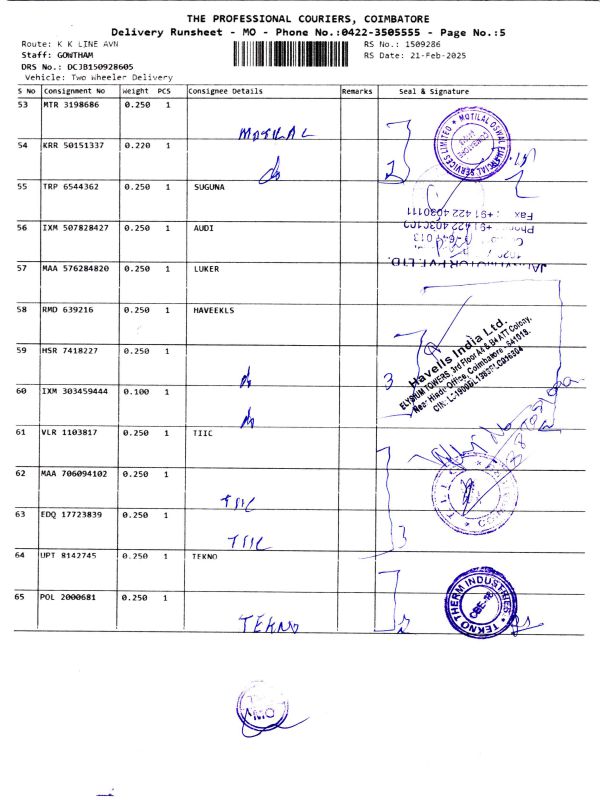 THE PROFESSIONAL COURIERS, COIMBATORE
Delivery Runsheet - MO - Phone No.:0422-3505555 - Page No.:5
Route: K K LINE AVN RS No.: 1509286
Staff: GOWTHAM RS Date: 21-Feb-2025
DRS No.: DCJB150928605
Vehicle: Two Wheeler Delivery
S No Consignment No Weight PCS Consignee Details Remarks Seal & Signature
53 MTR 3198686 0.250 1
MOTILAL
MOTILAL OSWAL FINANCIAL SERVICES LIMITED
54 KRR 50151337 0.220 1
2
55 TRP 6544362 0.250 1 SUGUNA
Fax : +91 422 4030111
56 IXM 507828427 0.250 1 AUDI
57 MAA 576284820 0.250 1 LUKER
58 RMD 639216 0.250 1 HAVEEKLS
Havells India Ltd.
ELYSIUM TOWERS, 3rd Floor A4 & B4 ATT Colony,
Near Hindu Office, Coimbatore - 641018.
59 HSR 7418227 0.250 1
3
60 IXM 303459444 0.100 1
61 VLR 1103817 0.250 1 TIIC
62 MAA 706094102 0.250 1
TIIC
63 EDQ 17723839 0.250 1
TIIC
3
64 UPT 8142745 0.250 1 TEKNO
65 POL 2000681 0.250 1
TEKNO
2
TEKNO THERM INDUSTRIES
CBE-18